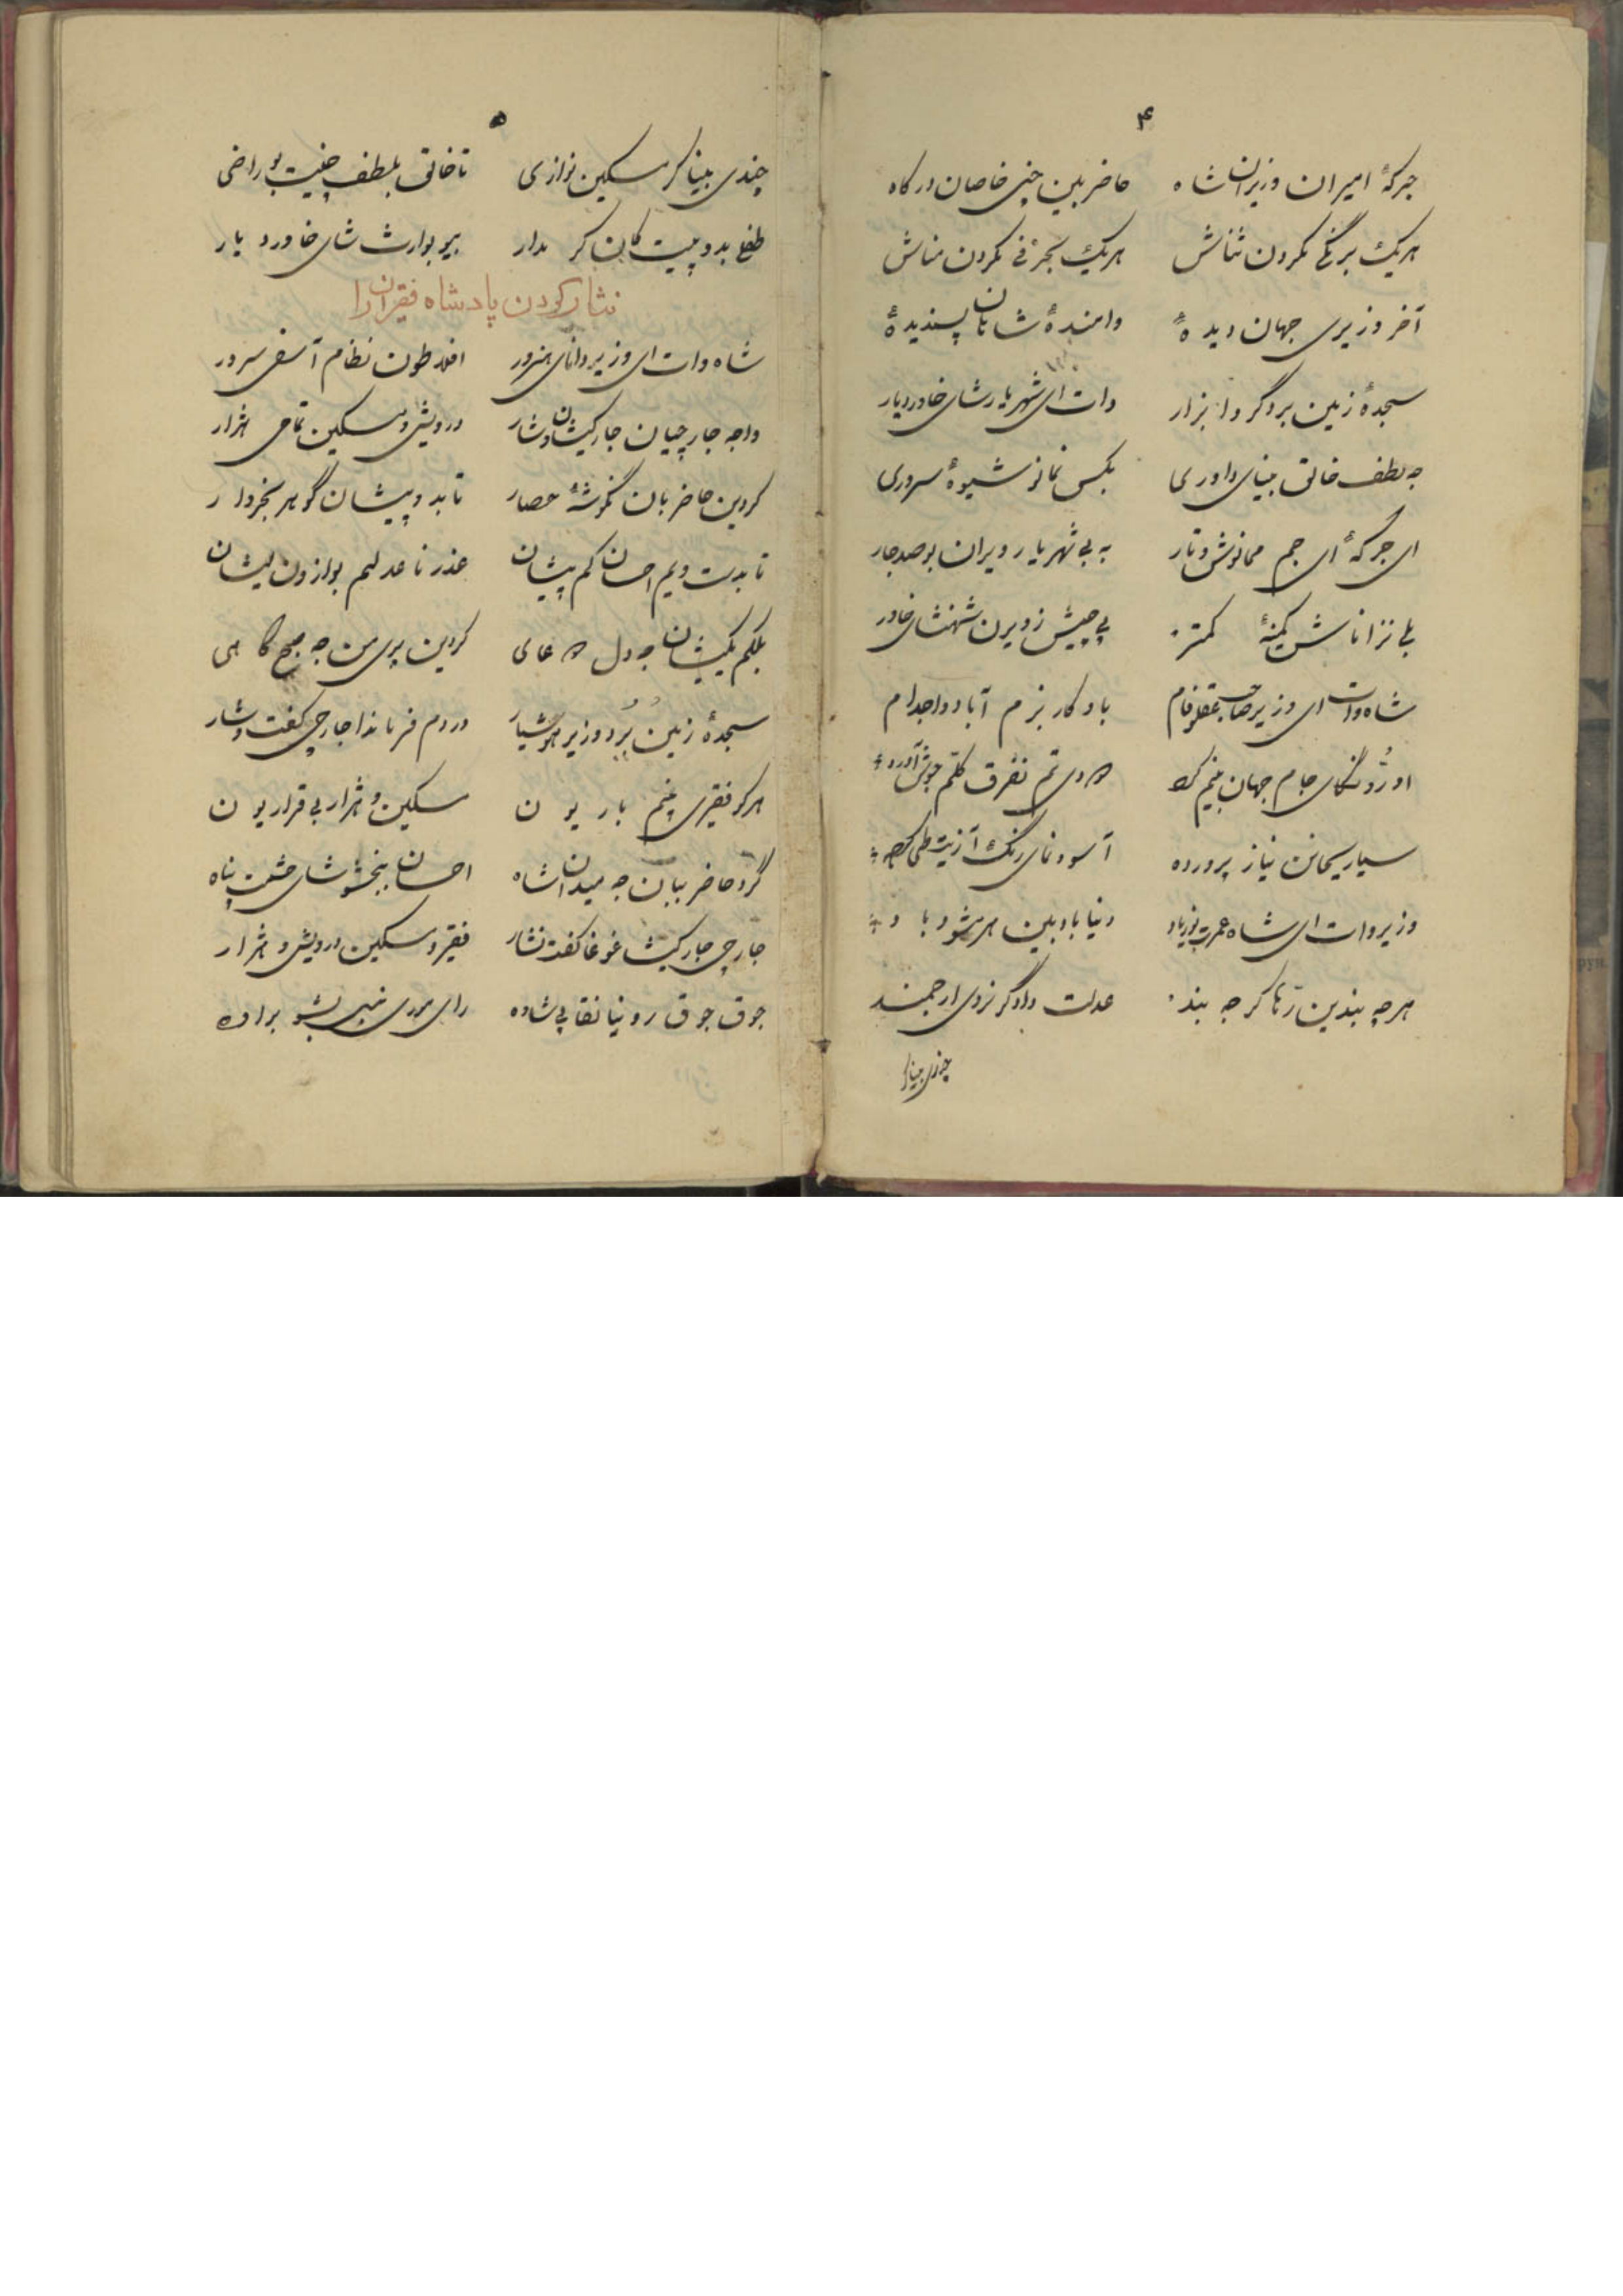 ۴
جرکهٔ امیران وزیران شاه حاضر بین چنی خاصان درگاه
هریک برنگی مکردن ثناش هریک بحرفی مکردن مناش
آخر وزیری جهان دیدهٔ وامندهٔ شاهان پسندیدهٔ
سجدهٔ زمین برد گر وا بزار وات ای شهریار شای خاور دیار
جه لطف خالق بینای داوری بکس نمانو شیوهٔ سروری
ای جرکهٔ ای جم ممانوش وتار به بی شهریار ویران بو صد جار
بلی نزاناش کمینهٔ کمتر بی چیش زویرن شهنشای خاور
شاه وات ای وزیر صاحب عقل و فام باد کار بزم آباد واجدام
او رژونگای جام جهان بینم کرد تم نفرق کلتم جوش آورد
سیاریحانن نیاز پرورده آسو نمای رنگ آزیت طی کرده
وزیر وات ای شاه عمرت بو زیاد دنیا باد بلین هر مشو با د
هرچه بندین رها کر جه بند عدالت دادگر نزدی ارجمند
چندی بینا
۵
چندی بینا کر مسکین نوازی تا خالق بلطف چنیت بو راضی
طفلی بدو پیت کان کر مدار بیو بوارث شای خاور دیار
نثار کردن پادشاه فقیران را
شاه وات ای وزیر دانای هنرور افلاطون نظام آصفی سرور
واجه جارچیان جار کیشان و شار درویش و مسکین تمامی هژار
کردین حاضر بان نگوشهٔ حصار تا بدو پیشان گوهر بخروار
تا بدست ویم احسان کم پیشان عذر نا عدلیم بوازون لیشان
بلکم یکیشان جه دل دعای کردین پری من جه صبح گاهی
سجدهٔ زمین برد وزیر هوشیار دردم فرماندا جارچی کفت و شار
هرکو فقیری بینم بار یون مسکین و هژار بی قرار یون
گرد حاضر ببان جه میدان شاه احسان ببخشو شای حشمت پناه
جارچی جار کیشا غوغا کفت نشار فقیر و مسکین درویش و هژار
جوق جوق رو نیا نقاپی شاده رای مردی نبی بشو براده